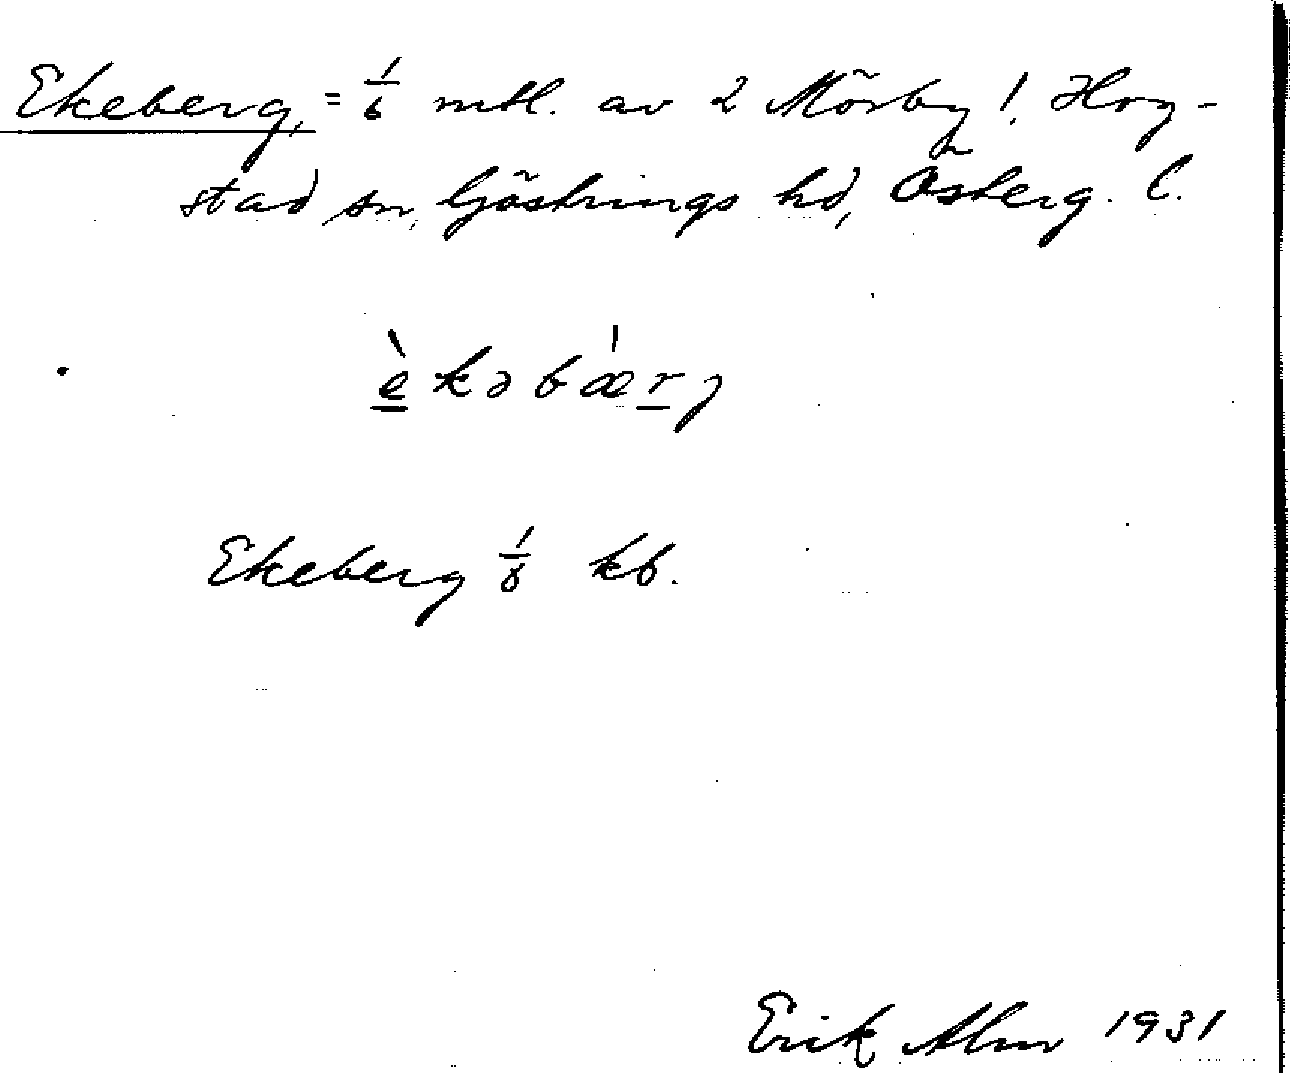 Ekeberg, = 1/6 mtl. av 2 Mörby!, Hog-
stad sn, Göstrings hd, Österg. l.
è̱kəbæ̀ṟȷ
Ekeberg 1/8 kb.
Erik Alm 1931